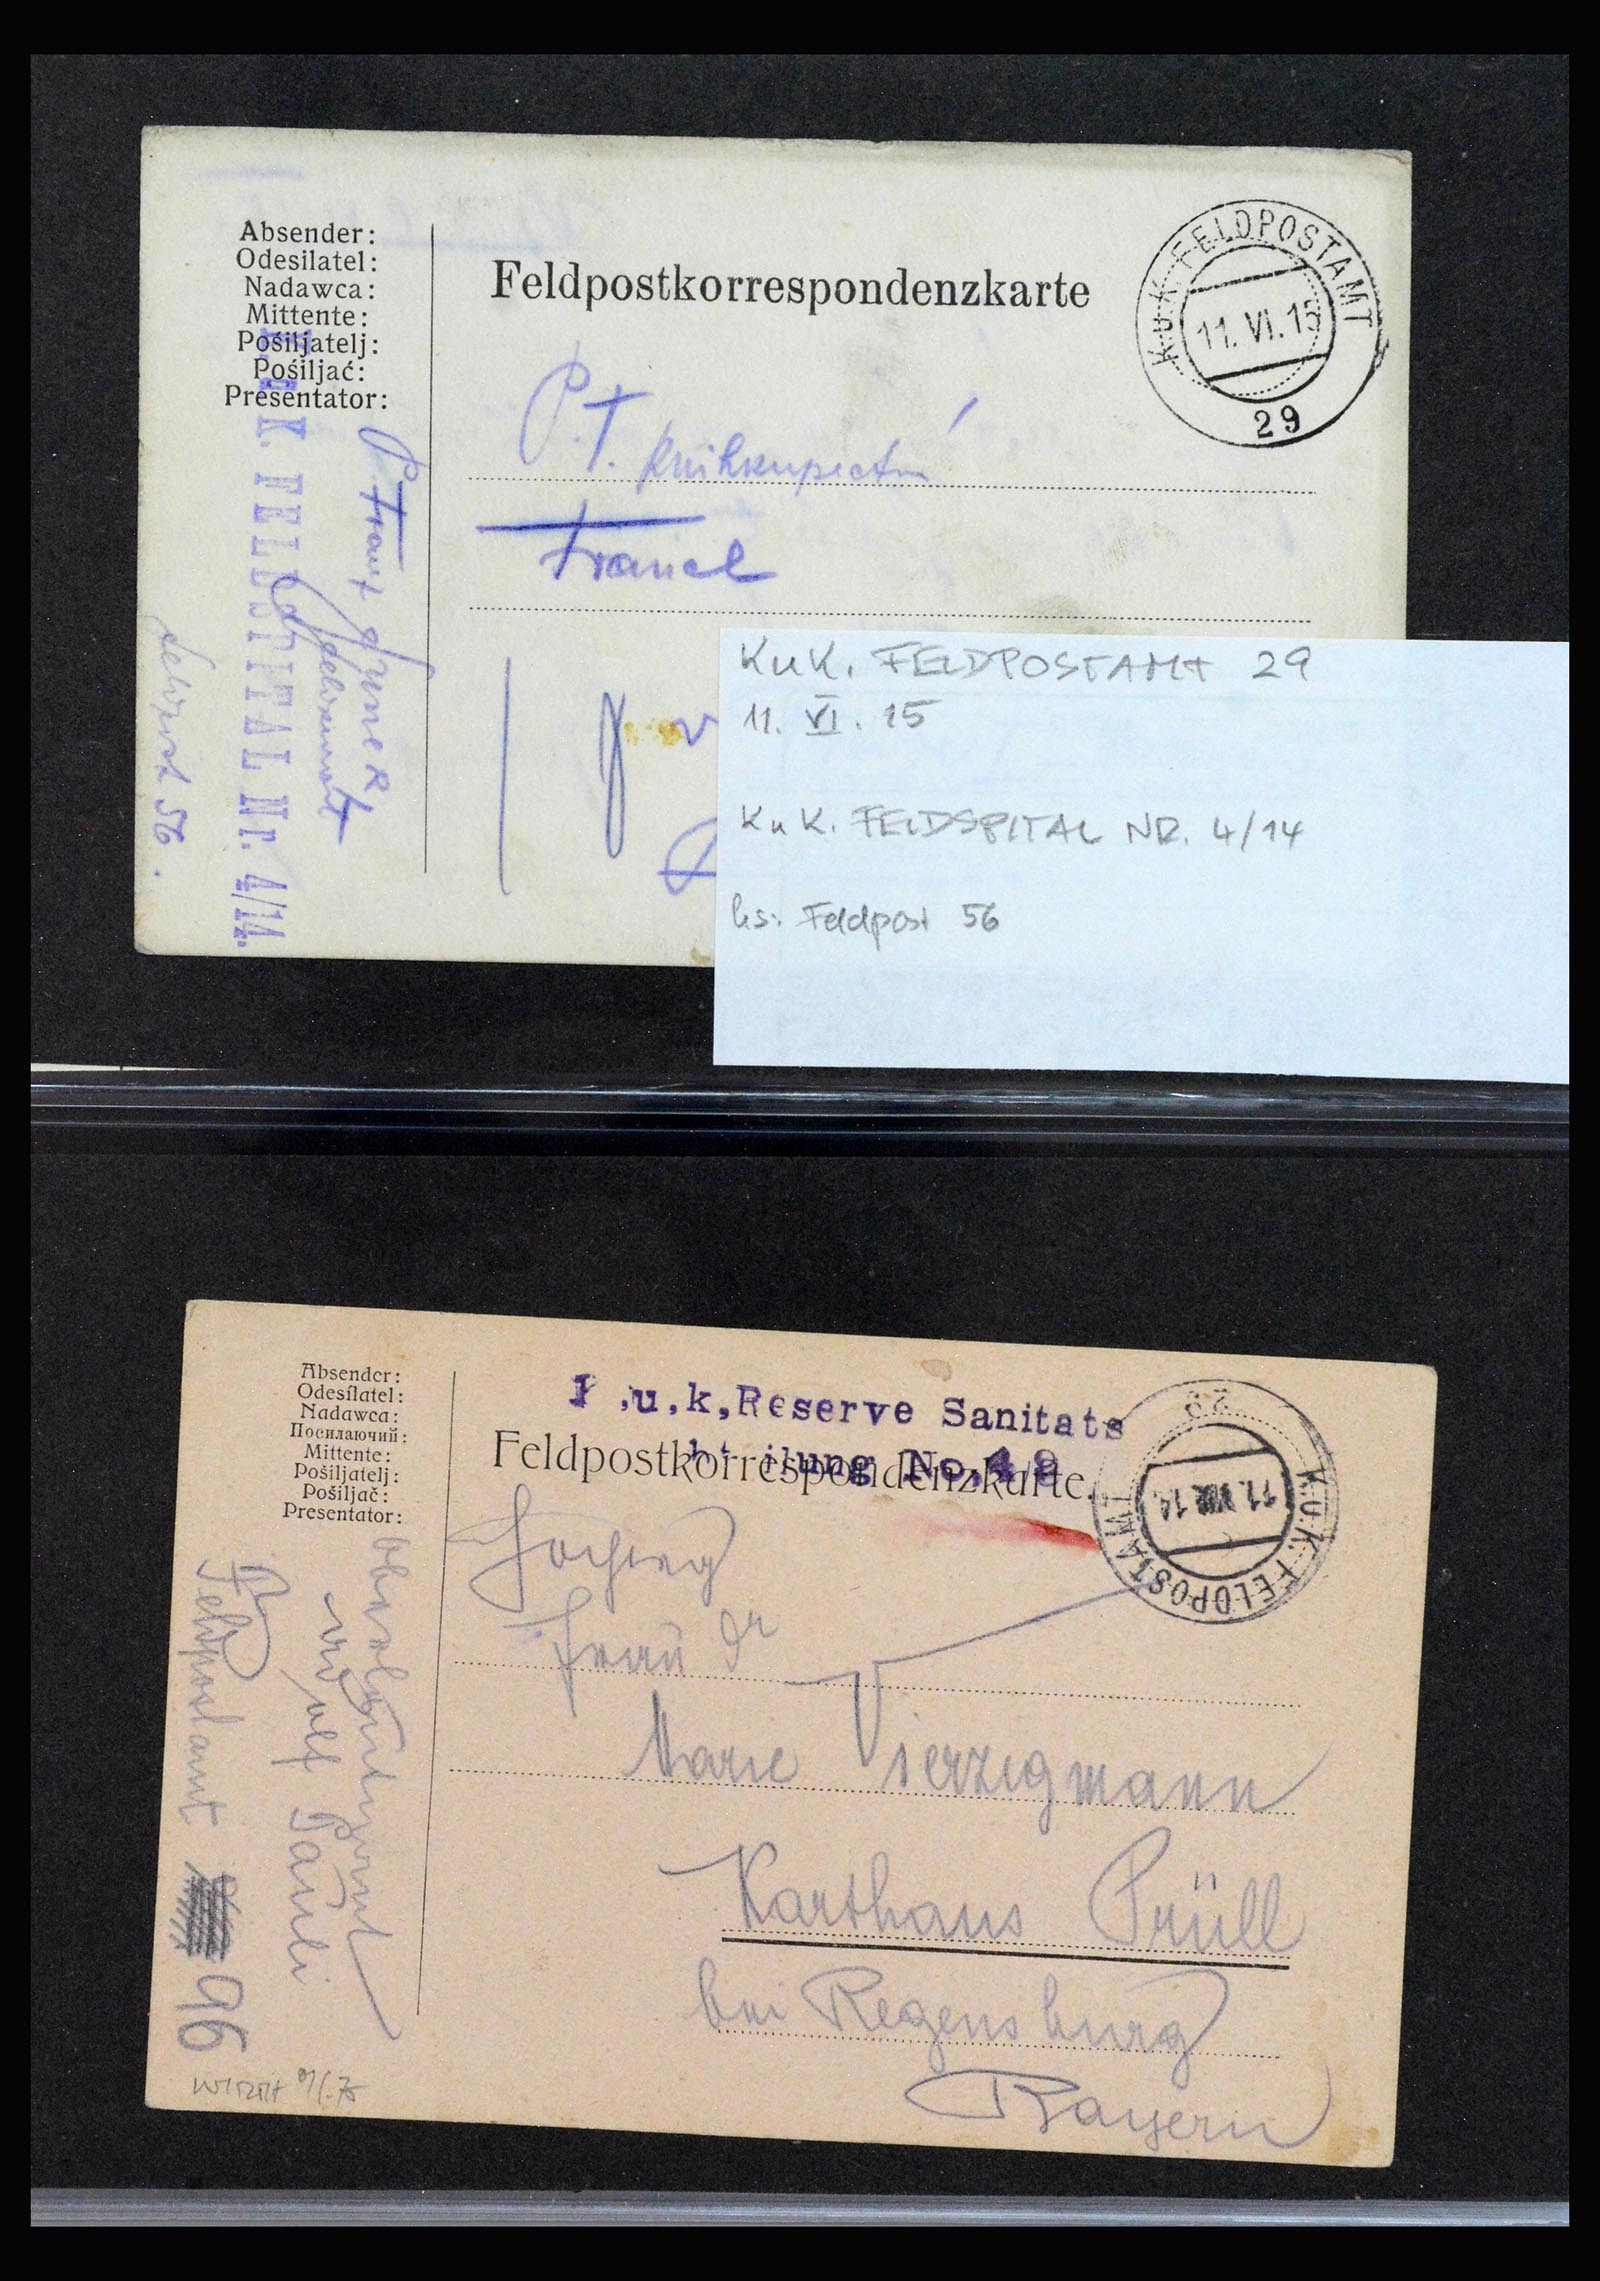 Absender:
Odesilatel:
Nadawca:
Mittente:
Pośiljatelj:
Pośiljać:
Presentator:
Feldpostkorrespondenzkarte
K.u.K. FELDPOSTAMT
11. VI. 15
29
P.T.
Francl
K. FELDSPITAL Nr. 4/14.
Franz
Feldpost 56.
KuK. FELDPOSTAMT 29
11. VI. 15
KuK. FELDSPITAL NR. 4/14
hs: Feldpost 56
Absender:
Odesílatel:
Nadawca:
Посилаючий:
Mittente:
Pošiljatelj:
Pošiljač:
Presentator:
.u.k,Reserve Sanitats
ilung No.
Feldpostkorrespondenzkarte.
K.u.K. FELDPOSTAMT
11. VIII. 14
Frau Dr
Marie Vierzigmann
Karthaus Prüll
bei Regensburg
Bayern
Rudolf Pauli
Feldpostamt 96